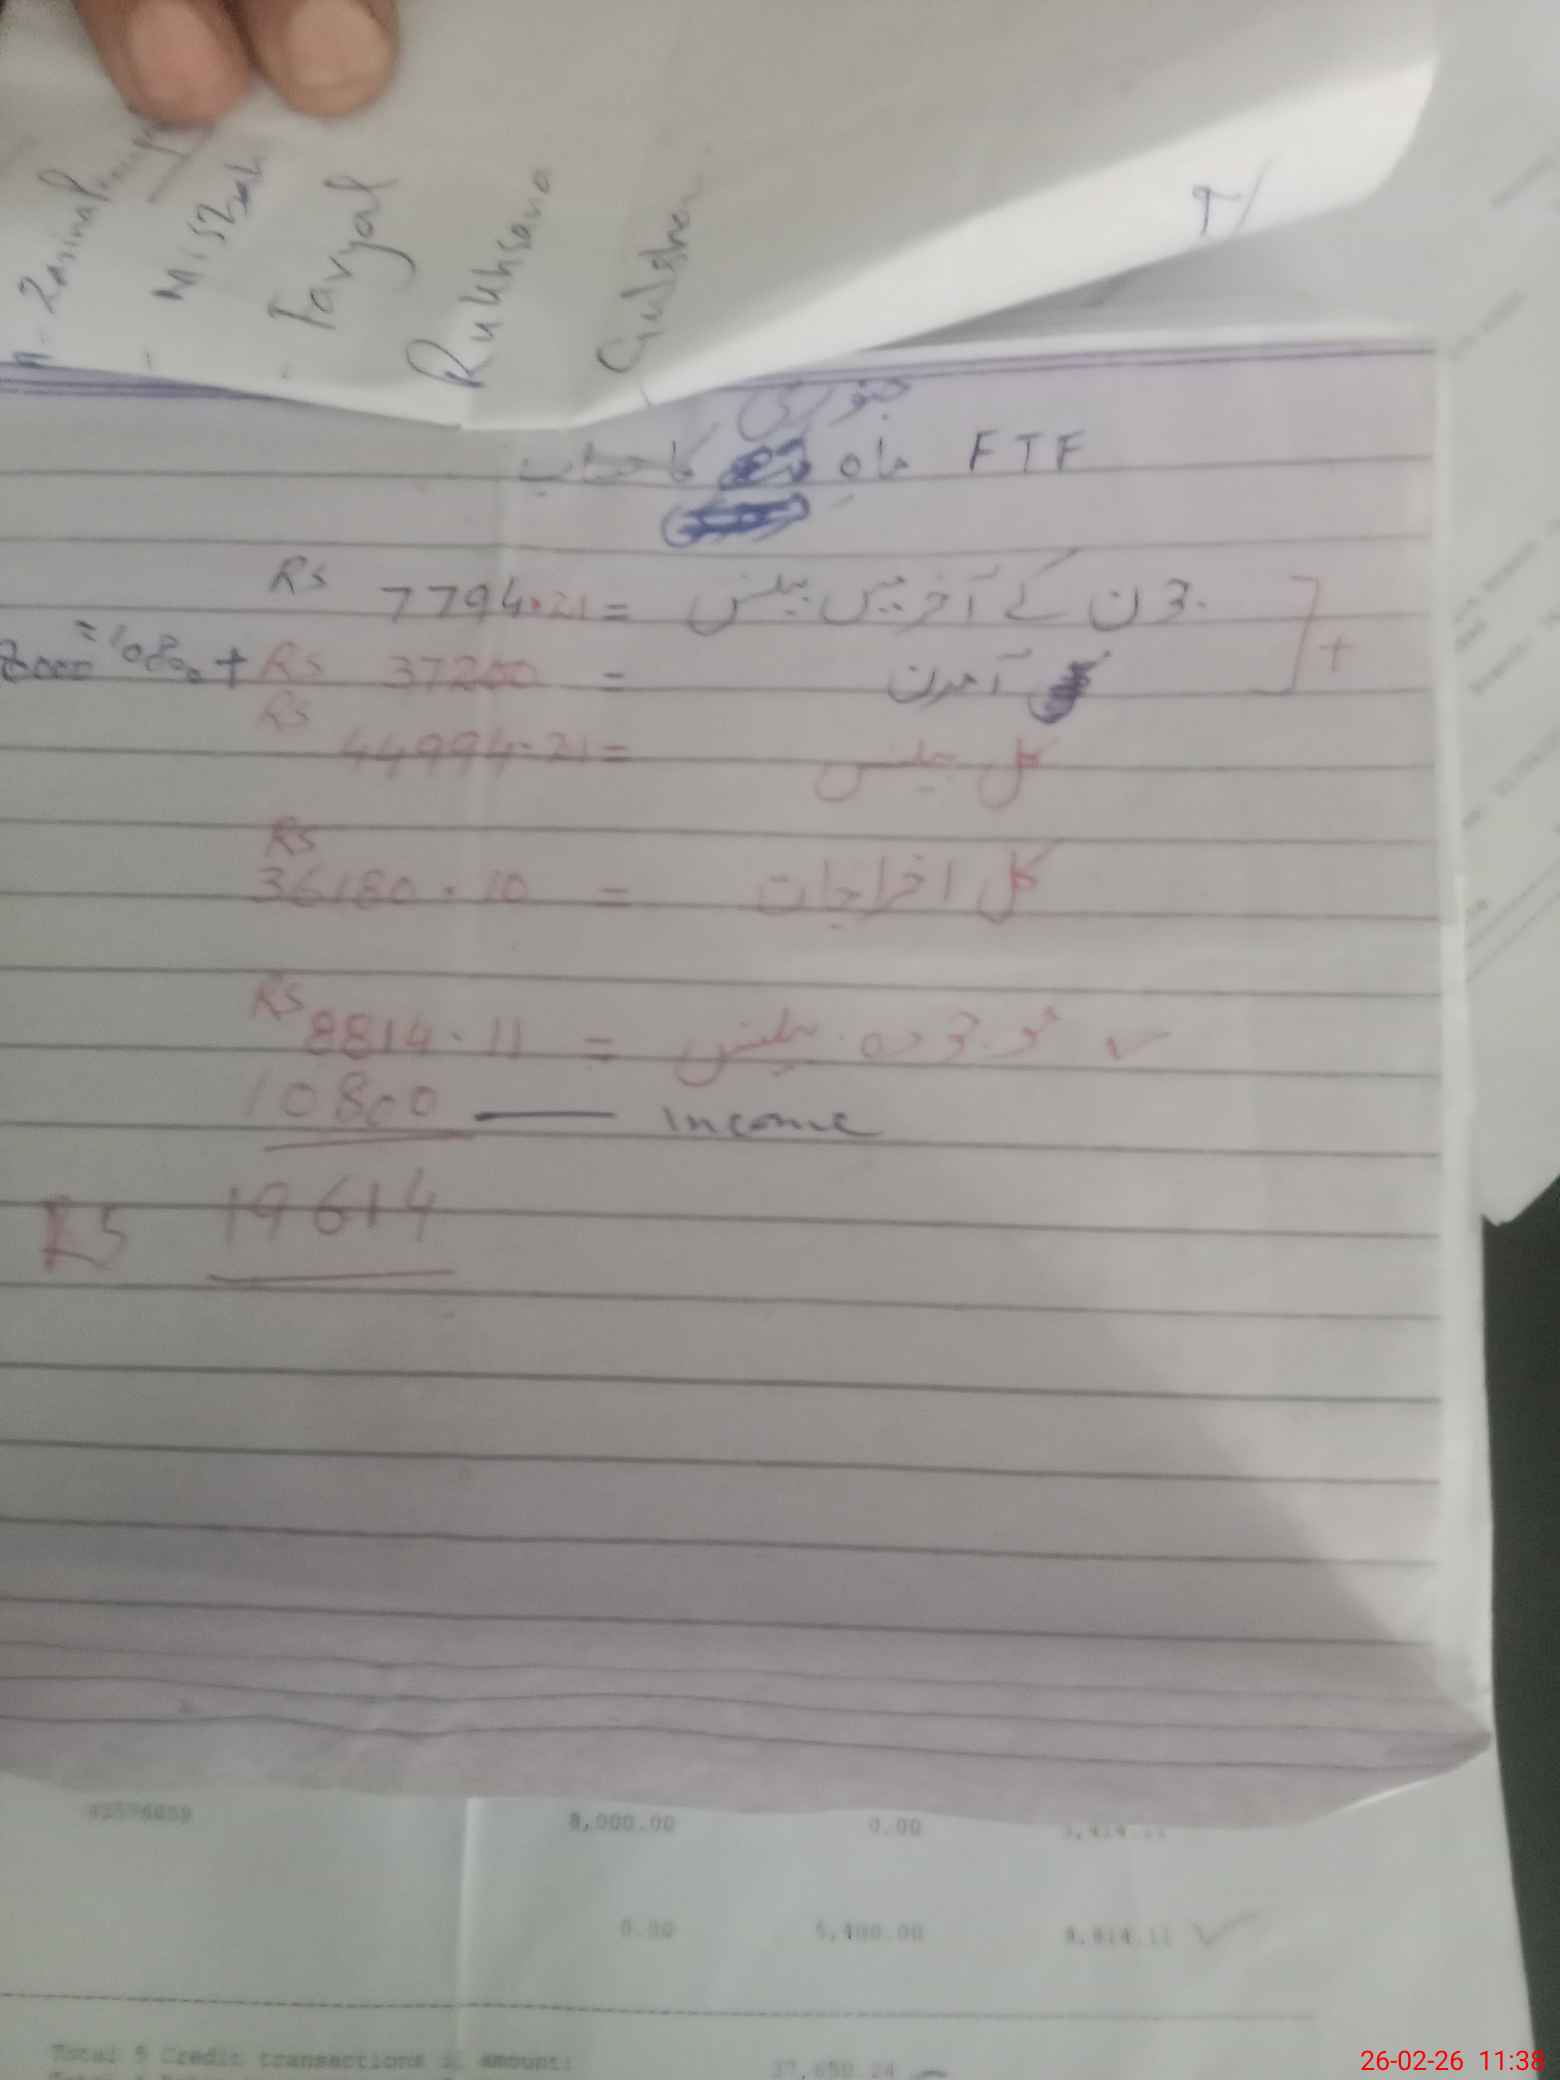 Misbah
Taryal
Rukhsana
Gulshan
جنوری
FTF ماہ کا حساب
جون کے آخر میں بیلنس = 7794.21 Rs
آمدن = 37200 Rs + 10800 =
کل بیلنس = 44994.21 Rs
کل اخراجات = 36180.10 Rs
موجودہ بیلنس = 8814.11 Rs
10800 — Income
Rs 19614
8,000.00 0.00
0.00 5,400.00 8,814.11
Total 5 Credit transactions amount:
26-02-26 11:38